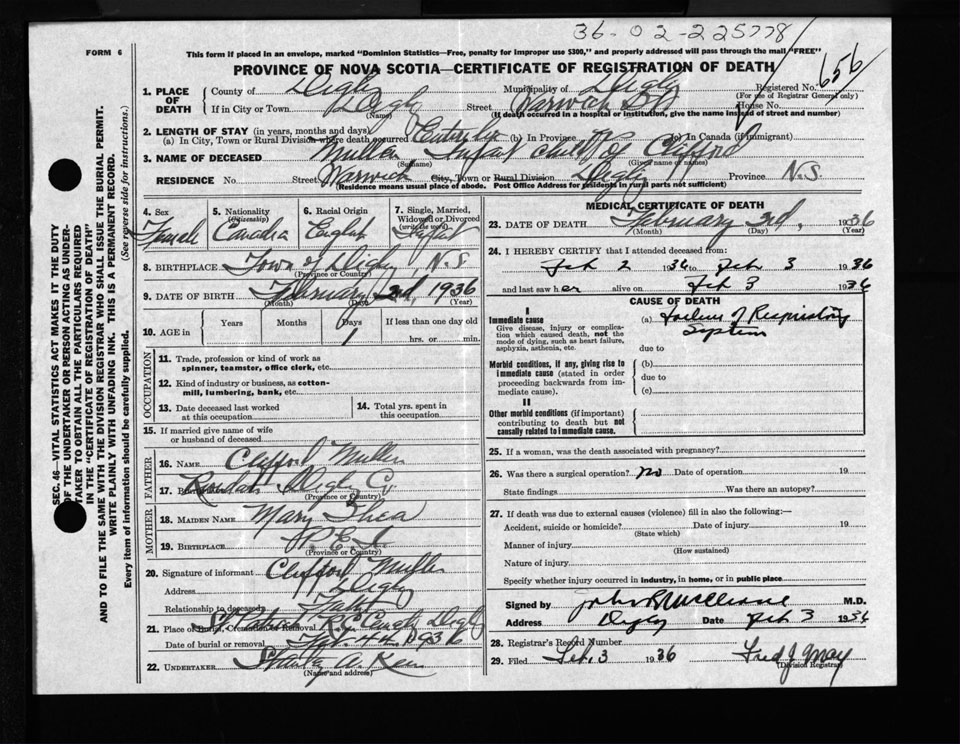 36-02-225778
656
FORM 6
This form if placed in an envelope, marked "Dominion Statistics—Free, penalty for improper use $300," and properly addressed will pass through the mail "FREE"
PROVINCE OF NOVA SCOTIA—CERTIFICATE OF REGISTRATION OF DEATH
SEC. 46—VITAL STATISTICS ACT MAKES IT THE DUTY
OF THE UNDERTAKER OR PERSON ACTING AS UNDER-
TAKER TO OBTAIN ALL THE PARTICULARS REQUIRED
IN THE "CERTIFICATE OF REGISTRATION OF DEATH"
AND TO FILE THE SAME WITH THE DIVISION REGISTRAR WHO SHALL ISSUE THE BURIAL PERMIT.
WRITE PLAINLY WITH UNFADING INK. THIS IS A PERMANENT RECORD.
Every item of information should be carefully supplied. (See reverse side for instructions.)
1. PLACE OF DEATH
County of Digby Municipality of Digby Registered No.
(For use of Registrar General only)
If in City or Town Digby Street Warwick St House No.
(Name) (If death occurred in a hospital or institution, give the name instead of street and number)
2. LENGTH OF STAY (in years, months and days)
(a) In City, Town or Rural Division where death occurred Entire life (b) In Province (c) In Canada (if immigrant)
3. NAME OF DECEASED Mullen Infant child of Clifford
(Surname) (Given name or names)
RESIDENCE No. Street Warwick City, Town or Rural Division Digby Province N.S.
(Residence means usual place of abode. Post Office Address for residents in rural parts not sufficient)
4. Sex Female
5. Nationality (Citizenship) Canadia
6. Racial Origin English
7. Single, Married, Widowed or Divorced (write the word) Infant
8. BIRTHPLACE Town of Digby, N.S.
(Province or Country)
9. DATE OF BIRTH February 2nd, 1936
(Month) (Day)
10. AGE in Years Months Days If less than one day old
hrs. or min.
OCCUPATION
11. Trade, profession or kind of work as
spinner, teamster, office clerk, etc.
12. Kind of industry or business, as cotton-
mill, lumbering, bank, etc.
13. Date deceased last worked
at this occupation
14. Total yrs. spent in
this occupation
15. If married give name of wife
or husband of deceased
FATHER
16. NAME Clifford Mullen
17. Birthplace Digby Co.
(Province or Country)
MOTHER
18. MAIDEN NAME Mary Shea
19. BIRTHPLACE P.E.I.
(Province or Country)
20. Signature of informant Clifford Mullen
Address Digby
Relationship to deceased Father
21. Place of Burial, Cremation or Removal Digby
Date of burial or removal Feb. 4th 1936
22. UNDERTAKER
(Name and address)
MEDICAL CERTIFICATE OF DEATH
23. DATE OF DEATH February 3rd, 1936
(Month) (Day) (Year)
24. I HEREBY CERTIFY that I attended deceased from:
Feb 2 1936 to Feb 3 1936
and last saw her alive on Feb 3 1936
CAUSE OF DEATH
I
Immediate cause
Give disease, injury or complica-
tion which caused death, not the
mode of dying, such as heart failure,
asphyxia, asthenia, etc.
(a) Failure of Respiratory
System
due to
Morbid conditions, if any, giving rise to
immediate cause (stated in order
proceeding backwards from im-
mediate cause).
(b)
due to
(c)
II
Other morbid conditions (if important)
contributing to death but not
causally related to immediate cause.
25. If a woman, was the death associated with pregnancy?
26. Was there a surgical operation? no Date of operation 19
State findings Was there an autopsy?
27. If death was due to external causes (violence) fill in also the following:—
Accident, suicide or homicide? Date of injury 19
(State which)
Manner of injury
(How sustained)
Nature of injury
Specify whether injury occurred in industry, in home, or in public place
Signed by M.D.
Address Digby Date Feb 3 1936
28. Registrar's Record Number
29. Filed Feb. 3 1936 Fred J. May
(Division Registrar)